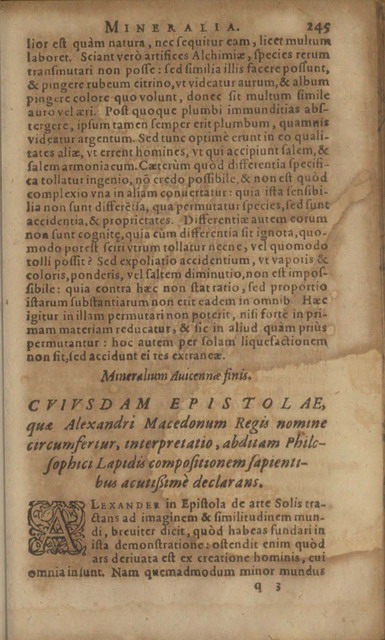 MINERALIA. 245
lior est quàm natura, nec sequitur eam, licet multum
laboret. Sciant verò artifices Alchimiæ, species rerum
transmutari non posse: sed similia illis facere possunt,
& pingere rubeum citrino, vt videatur aurum, & album
pingere colore quo volunt, donec sit multum simile
auro vel æri. Post quoque plumbi immunditias abs-
tergere, ipsum tamen semper erit plumbum, quamuis
videatur argentum. Sed tunc optimè erunt in eo quali-
tates aliæ, vt errent homines, vt qui accipiunt salem, &
salem armoniacum. Cæterùm quòd differentia specifi-
ca tollatur ingenio, nō credo possibile, & non est quòd
complexio vna in aliam conuertatur: quia ista sensibi-
lia non sunt differētia, qua permutatur species, sed sunt
accidentia, & proprietates. Differentiæ autem eorum
non sunt cognitę, quia cùm differentia sit ignota, quo-
modo potest sciri vtrum tollatur necne, vel quomodo
tolli possit? Sed expoliatio accidentium, vt vaporis &
coloris, ponderis, vel saltem diminutio, non est impos-
sibile: quia contra hæc non stat ratio, sed proportio
istarum substantiarum non erit eadem in omnib. Hæc
igitur in illam permutari non poterit, nisi forte in pri-
mam materiam reducatur, & sic in aliud quàm priùs
permutantur: hoc autem per solam liquefactionem
non fit, sed accidunt ei res extraneæ.
Mineralium Auicennæ finis.
CVIVSDAM EPISTOLAE,
quæ Alexandri Macedonum Regis nomine
circumfertur, interpretatio, abditam Philo-
sophici Lapidis compositionem sapienti-
bus acutissimè declarans.
ALEXANDER in Epistola de arte Solis tra-
ctans ad imaginem & similitudinem mun-
di, breuiter dicit, quòd habeas fundari in
ista demonstratione: ostendit enim quòd
ars deriuata est ex creatione hominis, cui
omnia insunt. Nam quemadmodum minor mundus
q 3